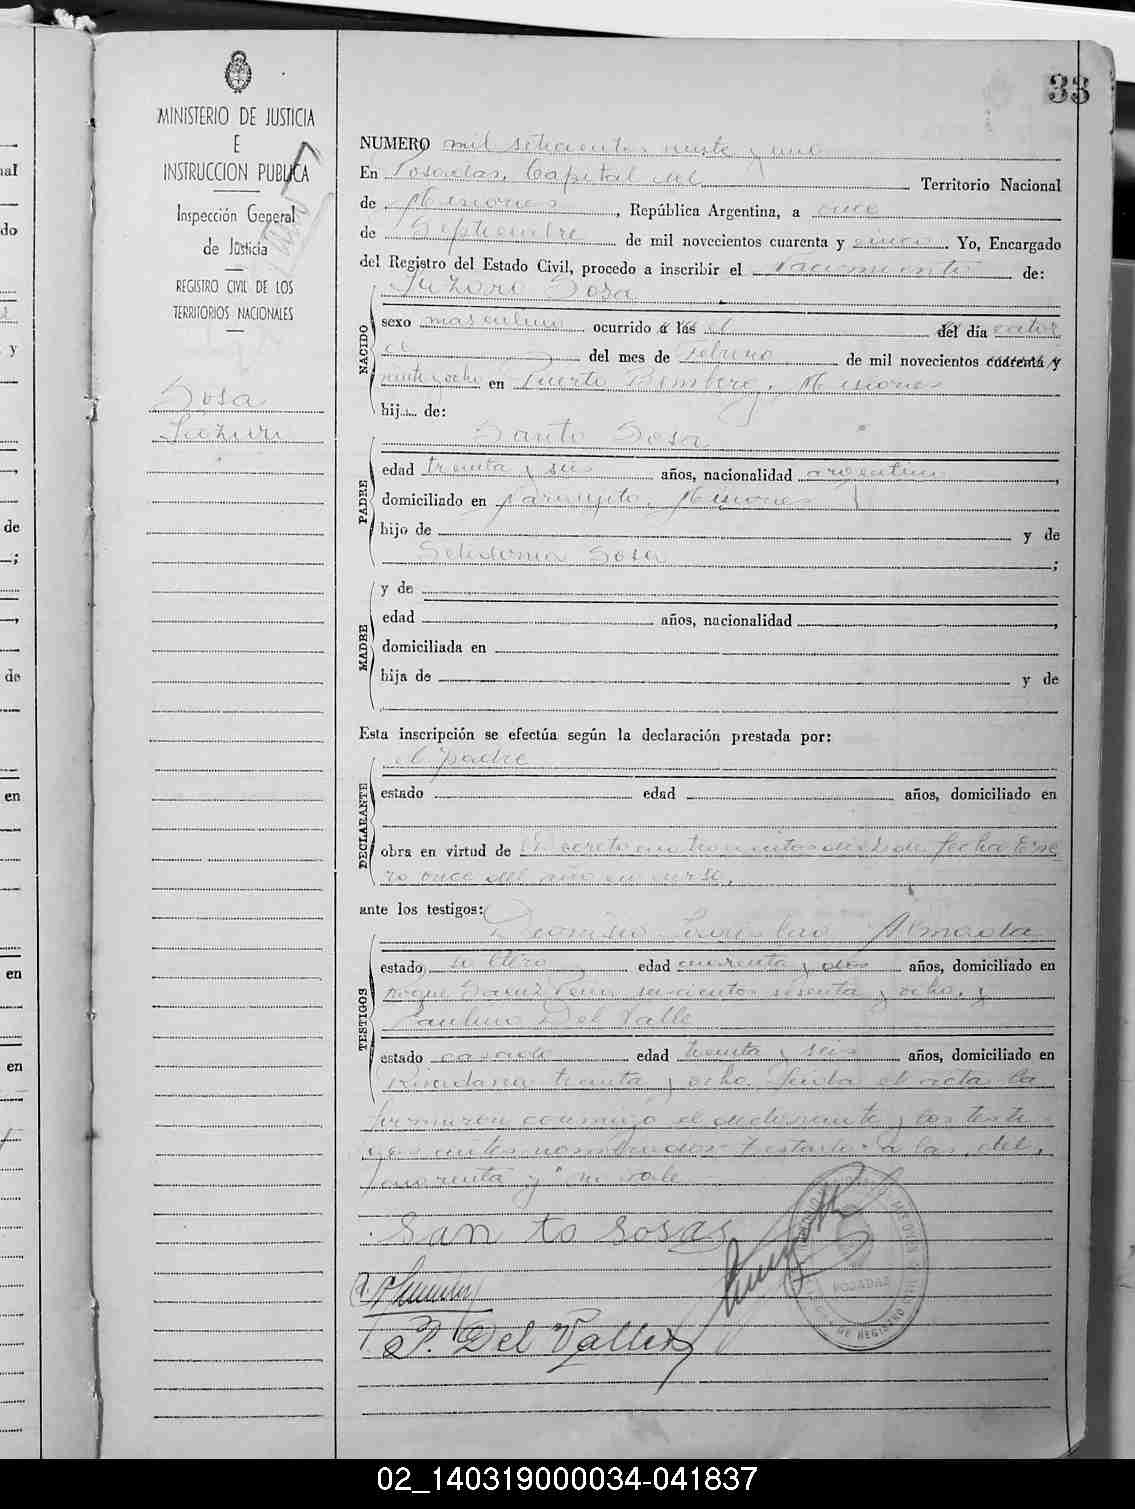 33
MINISTERIO DE JUSTICIA
E
INSTRUCCION PUBLICA
Inspección General
de Justicia
REGISTRO CIVIL DE LOS
TERRITORIOS NACIONALES
Sosa
NUMERO mil setecientos y uno
En Posadas, Capital del Territorio Nacional
de Misiones, República Argentina, a once
de Septiembre de mil novecientos cuarenta y cinco. Yo, Encargado
del Registro del Estado Civil, procedo a inscribir el Nacimiento de:
NACIDO
Sosa
sexo masculino ocurrido a las el del día cator
ce del mes de Febrero de mil novecientos cuarenta y
veinte y ocho en Puerto Bemberg, Misiones
hij... de:
PADRE
Santo Sosa
edad treinta y seis años, nacionalidad argentino,
domiciliado en Naranjito, Misiones
hijo de y de
Sosa ;
MADRE
y de
edad años, nacionalidad ,
domiciliada en
hija de y de
Esta inscripción se efectúa según la declaración prestada por:
DECLARANTE
el padre
estado edad años, domiciliado en
obra en virtud de Decreto de fecha Ene
ro once del año en curso.
ante los testigos:
TESTIGOS
Almada
estado soltero edad cuarenta y dos años, domiciliado en
Roque Saenz Peña seiscientos sesenta y ocho, y
Paulino Del Valle
estado casado edad treinta y seis años, domiciliado en
Rivadavia treinta y ocho. Leida el acta la
firmaron conmigo el declarante y los testi
gos antes nombrados. Testado: a las, del,
cuarenta y" no vale
Santo Sosa
P. Del Valle
POSADAS
02_140319000034-041837